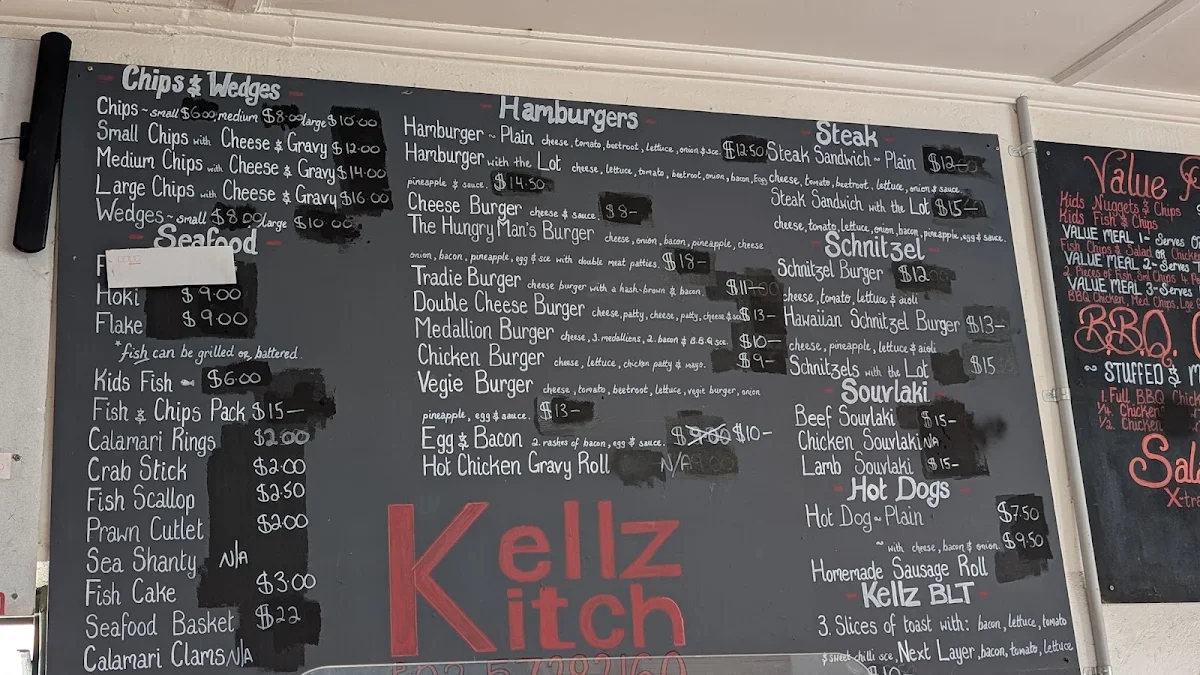 Chips & Wedges
Chips ~ small $6.00 medium $8.00 large $10.00
Small Chips with Cheese & Gravy $12.00
Medium Chips with Cheese & Gravy $14.00
Large Chips with Cheese & Gravy $16.00
Wedges ~ small $8.00 large $10.00
Seafood
F
Hoki $9.00
Flake $9.00
*fish can be grilled or battered.
Kids Fish $6.00
Fish & Chips Pack $15-
Calamari Rings $2.00
Crab Stick $2.00
Fish Scallop $2.50
Prawn Cutlet $2.00
Sea Shanty N/A
Fish Cake $3.00
Seafood Basket $22
Calamari Clams N/A
Hamburgers
Hamburger ~ Plain cheese, tomato, beetroot, lettuce, onion & sce. $12.50
Hamburger with the Lot cheese, lettuce, tomato, beetroot, onion, bacon, Egg
pineapple & sauce. $14.50
Cheese Burger cheese & sauce. $8-
The Hungry Man's Burger cheese, onion, bacon, pineapple, cheese
onion, bacon, pineapple, egg & sce with double meat patties. $18-
Tradie Burger cheese burger with a hash-brown & bacon, $11-
Double Cheese Burger cheese, patty, cheese, patty, cheese & sce $13-
Medallion Burger cheese, 3. medallions, 2. bacon & B.B.Q sce. $10-
Chicken Burger cheese, lettuce, chicken patty & mayo. $9-
Vegie Burger cheese, tomato, beetroot, lettuce, vegie burger, onion
pineapple, egg & sauce. $13-
Egg & Bacon 2. rashes of bacon, egg & sauce. $9.00 $10-
Hot Chicken Gravy Roll N/A
Kellz
Kitch
Steak
Steak Sandwich ~ Plain $12
cheese, tomato, beetroot, lettuce, onion & sauce
Steak Sandwich with the Lot $15-
cheese, tomato, lettuce, onion, bacon, pineapple, egg & sce.
Schnitzel
Schnitzel Burger $12
cheese, tomato, lettuce & aioli
Hawaiian Schnitzel Burger $13-
cheese, pineapple, lettuce & aioli
Schnitzels with the Lot $15
Souvlaki
Beef Souvlaki $15-
Chicken Souvlaki N/A
Lamb Souvlaki $15-
Hot Dogs
Hot Dog ~ Plain $7.50
~ with cheese, bacon & onion. $9.50
Homemade Sausage Roll
Kellz BLT
3. Slices of toast with: bacon, lettuce, tomato
& sweet chilli sce, Next Layer, bacon, tomato, lettuce
Value
Kids Nuggets & Chips
Kids Fish & Chips
VALUE MEAL 1- Serves
Fish Chips & Salad OR Chicken
VALUE MEAL 2- Serves
2 Pieces of Fish, Sml Chips
VALUE MEAL 3- Serves
BBQ Chicken, Med Chips, Lge
B.B.Q.
~ STUFFED &
1. Full BBQ
1/4. Chicken
1/2. Chicken
X-tra